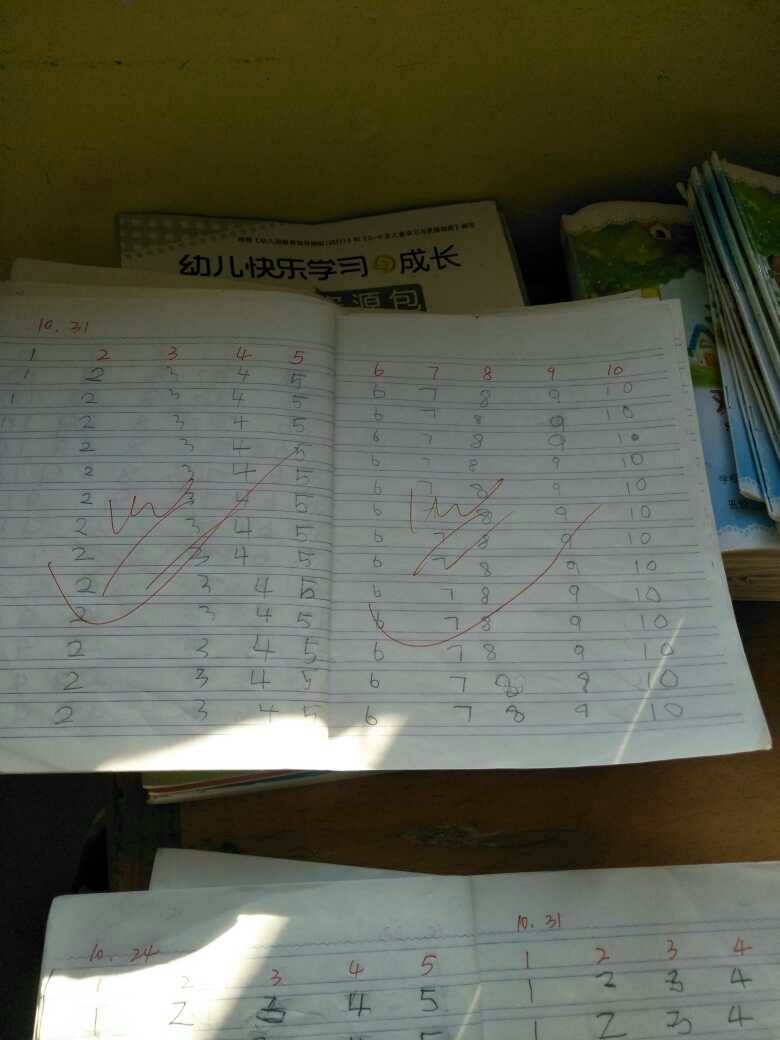 幼儿快乐学习与成长
源包
10.31
1 2 3 4 5
1 2 3 4 5
1 2 3 4 5
2 3 4 5
2 3 4 5
2 3 4 5
2 3 4 5
2 3 4 5
2 3 4 5
2 3 4 5
2 3 4 5
2 3 4 5
2 3 4 5
2 3 4 5
6 7 8 9 10
6 7 8 9 10
6 7 8 9 10
6 7 8 9 10
6 7 8 9 10
6 7 8 9 10
6 7 8 9 10
6 7 8 9 10
6 7 8 9 10
6 7 8 9 10
6 7 8 9 10
6 7 8 9 10
6 7 8 8 10
6 7 8 9 10
10.24
1 2 3 4 5
1 2 3 4 5
10.31
1 2 3 4
1 2 3 4
1 2 3 4